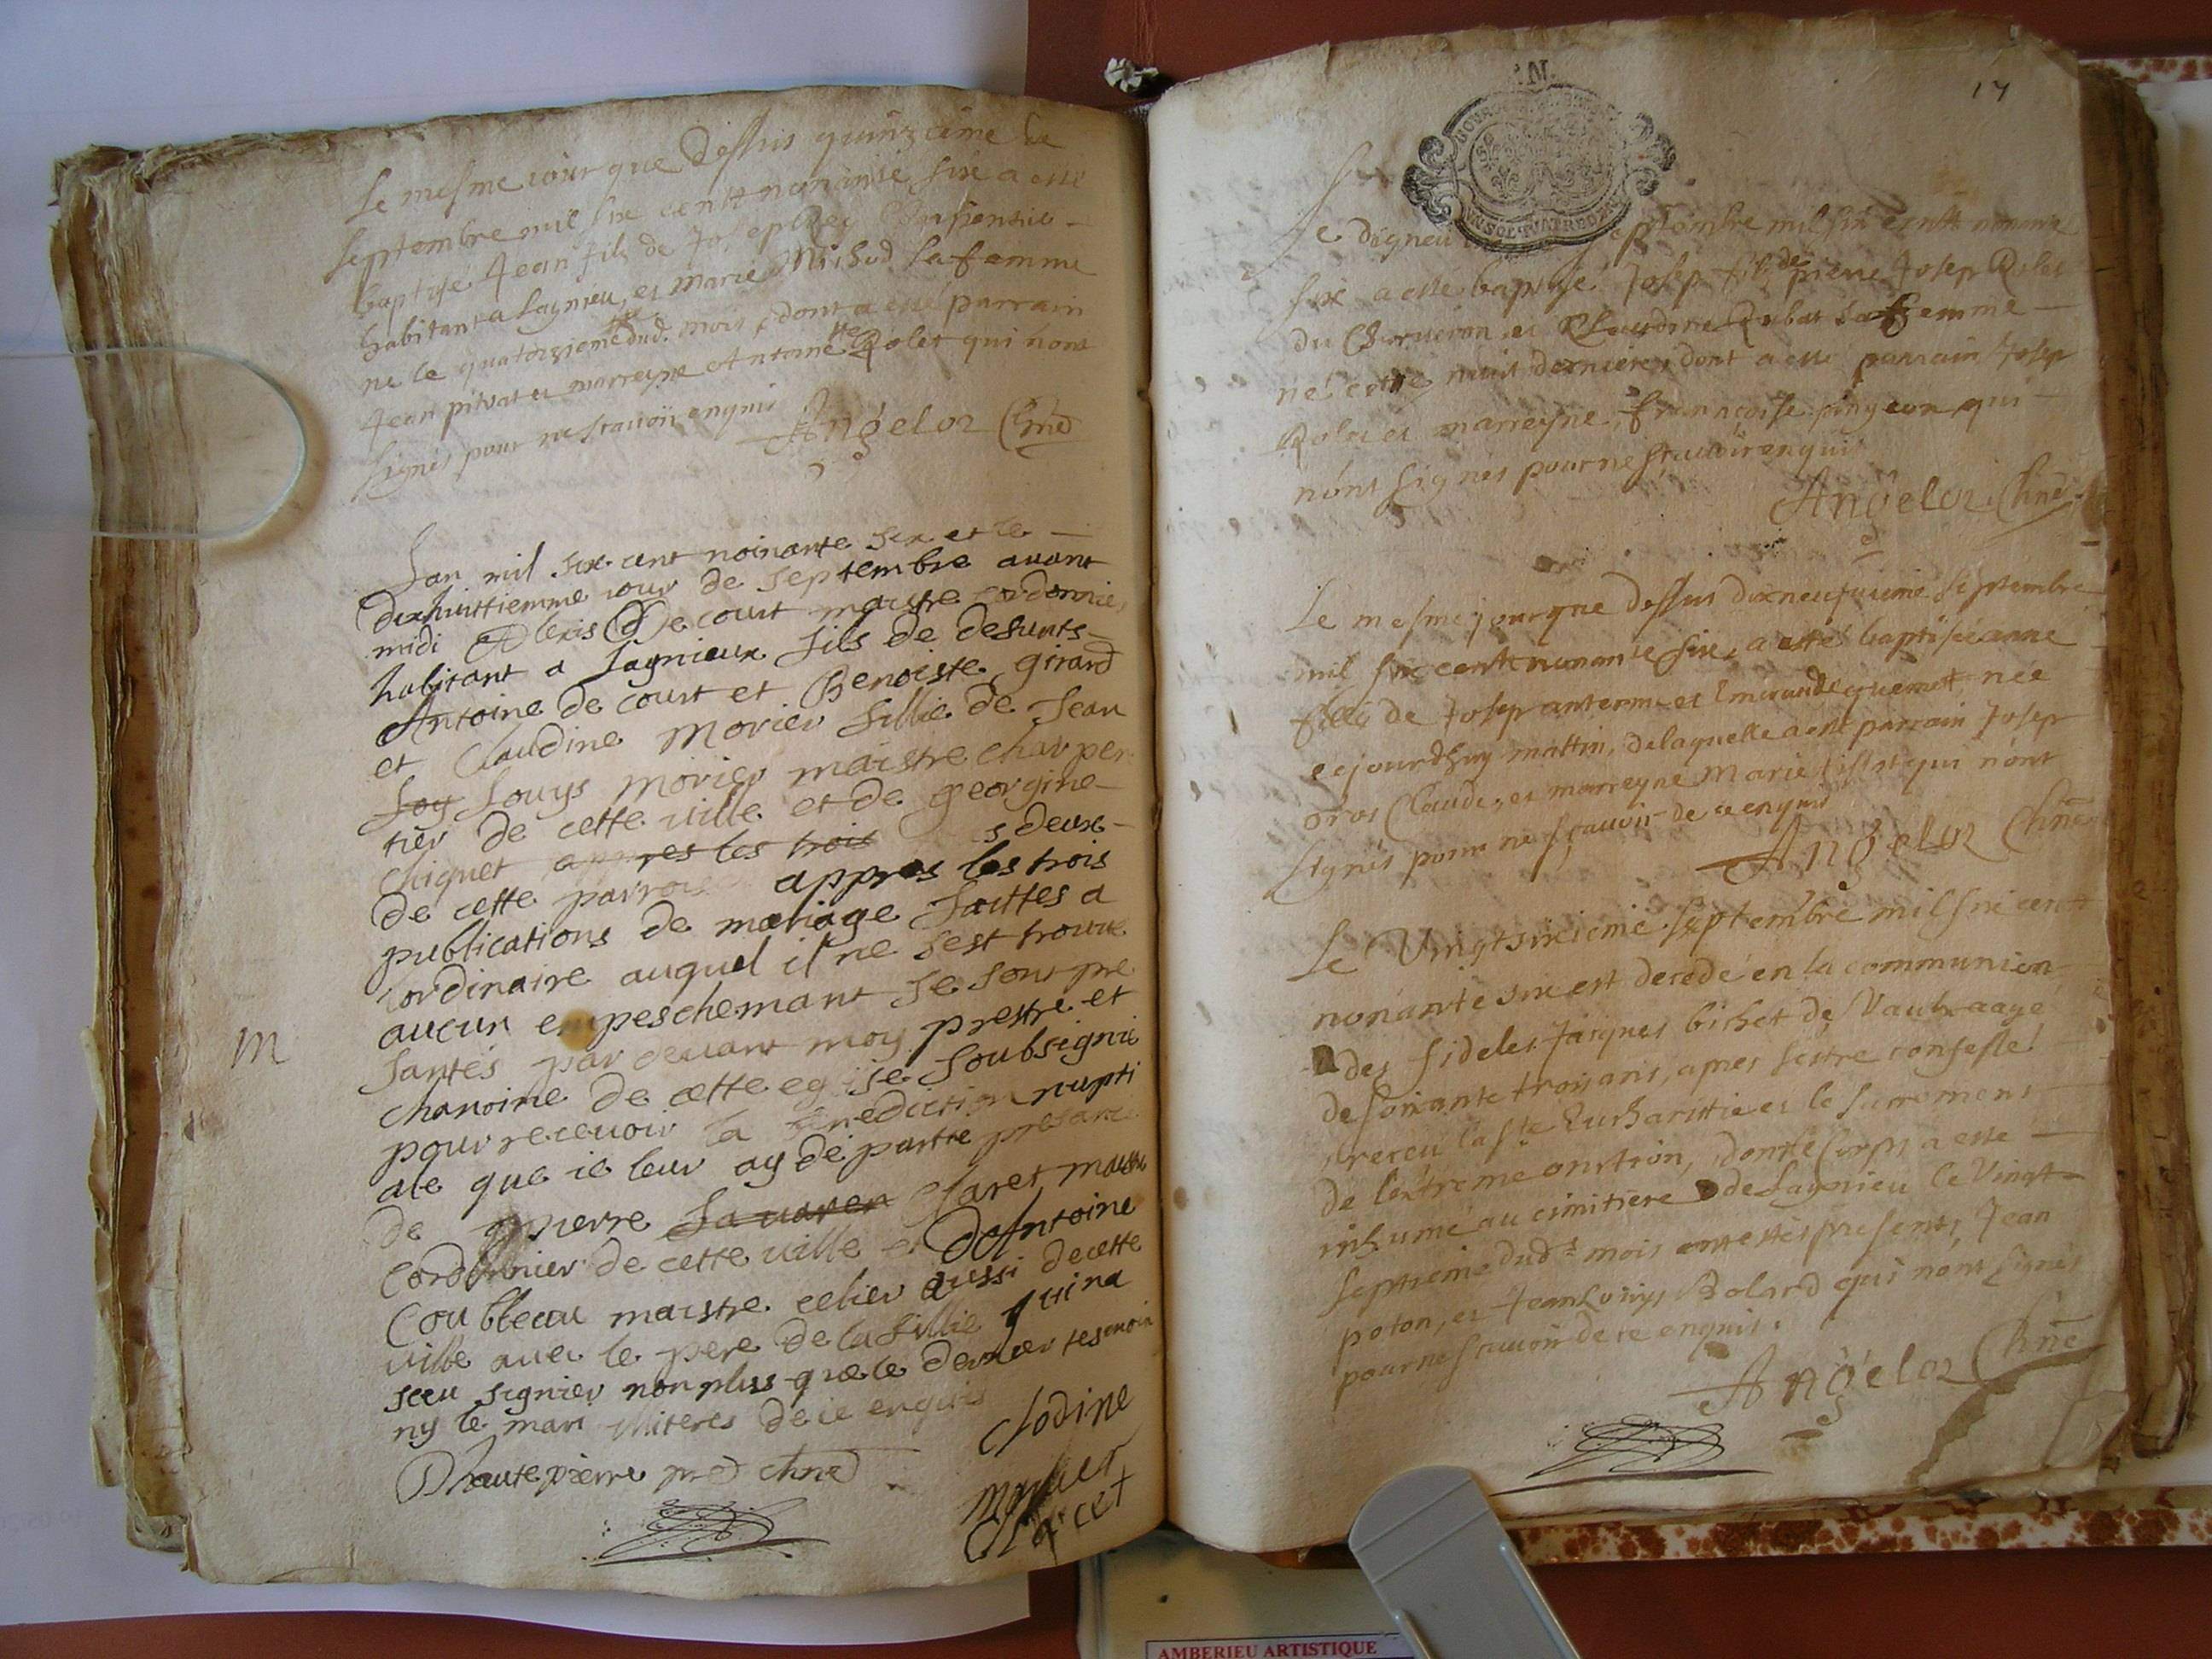 Le mesme iour que dessus quinzieme de
septembre mil six centt nonante six a esté
baptisé Jean fils de Joseph Rey Charpentie
habitant a Lagnieu, et Marie Michod sa femme
ne le quatorzieme dud. mois, dont a esté parrain
Jean pitvat et marreyne Antoinette Rolet qui nont
signés pour ne scavoir enquis
Angelot Chne
Lan mil six cent noinante six et le
dixhuittiemme iour de septembre avant
midi Alexis Decourt maistre cordonnier
habitant a Lagnieux fils de defunts
Antoine de court et Benoiste girard
et Claudine Morier fillie de Jean
Loy Louys morier maistre charpen
tier de cette ville et de georgine
chiquet appres les trois s deux
de cette parrois appres les trois
publications de mariage faittes a
lordinaire auquel il ne sest trouvé
aucun empeschemant se sont pre
santés par devant moy prestre et
chanoine de cette eglise soubsigné
pour recevoir la benediction nupti
ale que ie leur ay départie presance
de pierre Claret maistre
Cordonnier de cette ville et dAntoine
Coubleau maistre celier aussi de cette
ville avec le pere de la fillie qui na
sceu signier non plus que le dernier tesmoin
ny le mari de ce enquis
Dhautepierre pre chne
Clodine
morier
Claret
M
17
Le dixneu eptembre mil six centt nonante
six a esté baptisé Josep fils de pierre Josep Rolet
du Charveron et Claudine Rubat sa femme
né cette nuit derniere, dont a esté parrain Josep
Rolet et marreyne françoise pingeon qui
nónt signés pour ne scavoir enquis
Angelot Chne
Le mesme jour que dessus dixneufvieme septembre
mil six centt nonante six, a esté baptisée anne
fille de Josep anterme et Emeraude quemet née
cejourdhuy mattin, de laquelle a esté parrain Josep
oros Claude, et marreyne Marie tillet qui nónt
signés pour ne scavoir de ce enquis
Angelot Chne
Le Vingtsixieme septembre mil six centt
nonante six est decedé en la communion
des fideles Jacques bichet de Vaux aagé
de soixante trois ans, apres sestre confessé
receu la ste Eucharistie et le sacrement
de lextreme onction, dont le corps a esté
inhumé au cimitiere de Lagnieu le Vingt
septieme dudt mois ont estés presents Jean
poton, et Jean Louys Bolard qui nónt signés
pour ne scavoir de ce enquis.
Angelot Chne
AMBERIEU ARTISTIQUE